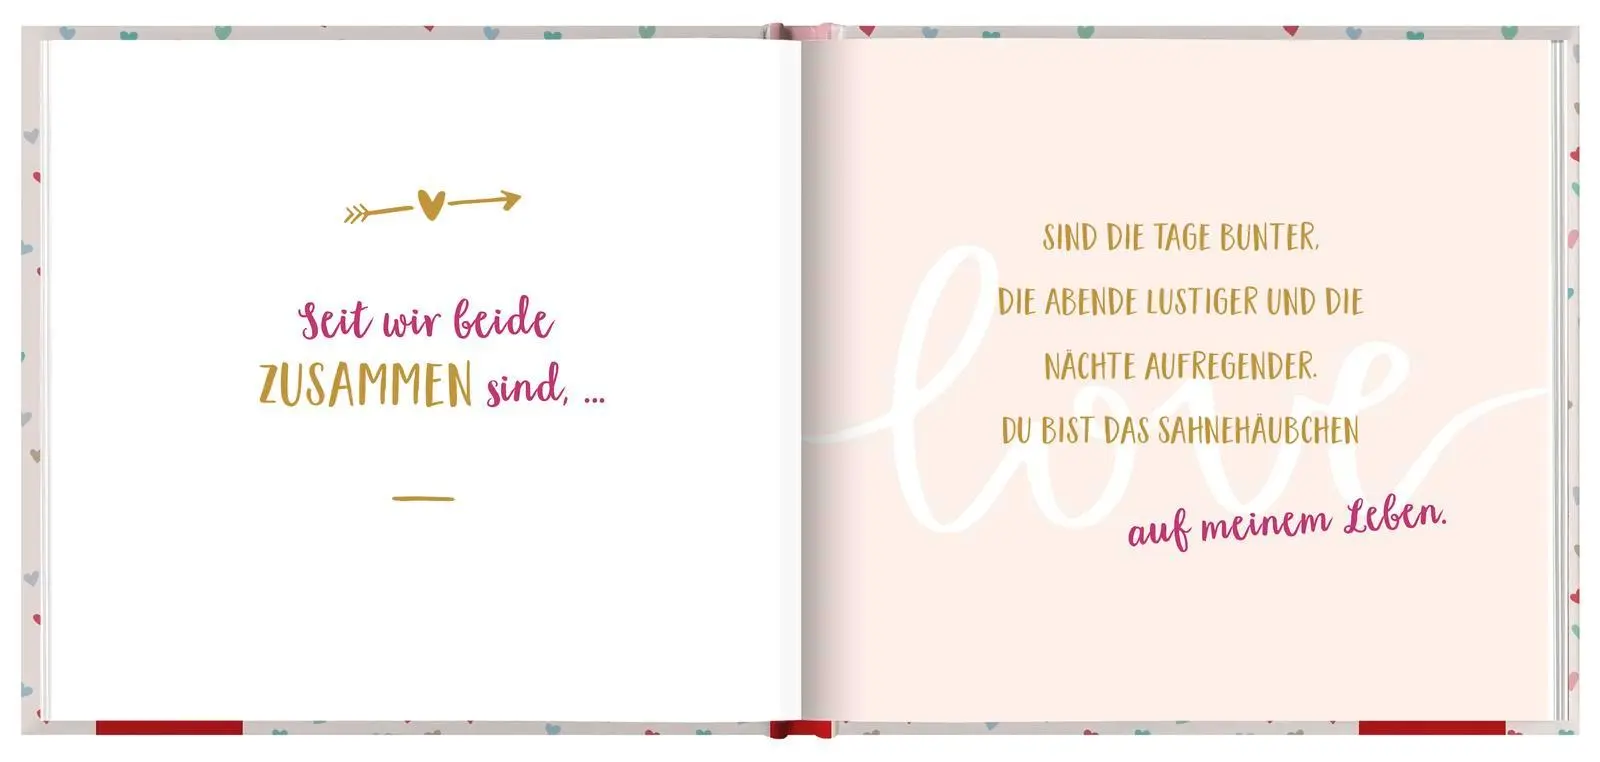 Seit wir beide
ZUSAMMEN sind, ...
SIND DIE TAGE BUNTER,
DIE ABENDE LUSTIGER UND DIE
NÄCHTE AUFREGENDER.
DU BIST DAS SAHNEHÄUBCHEN
auf meinem Leben.
love